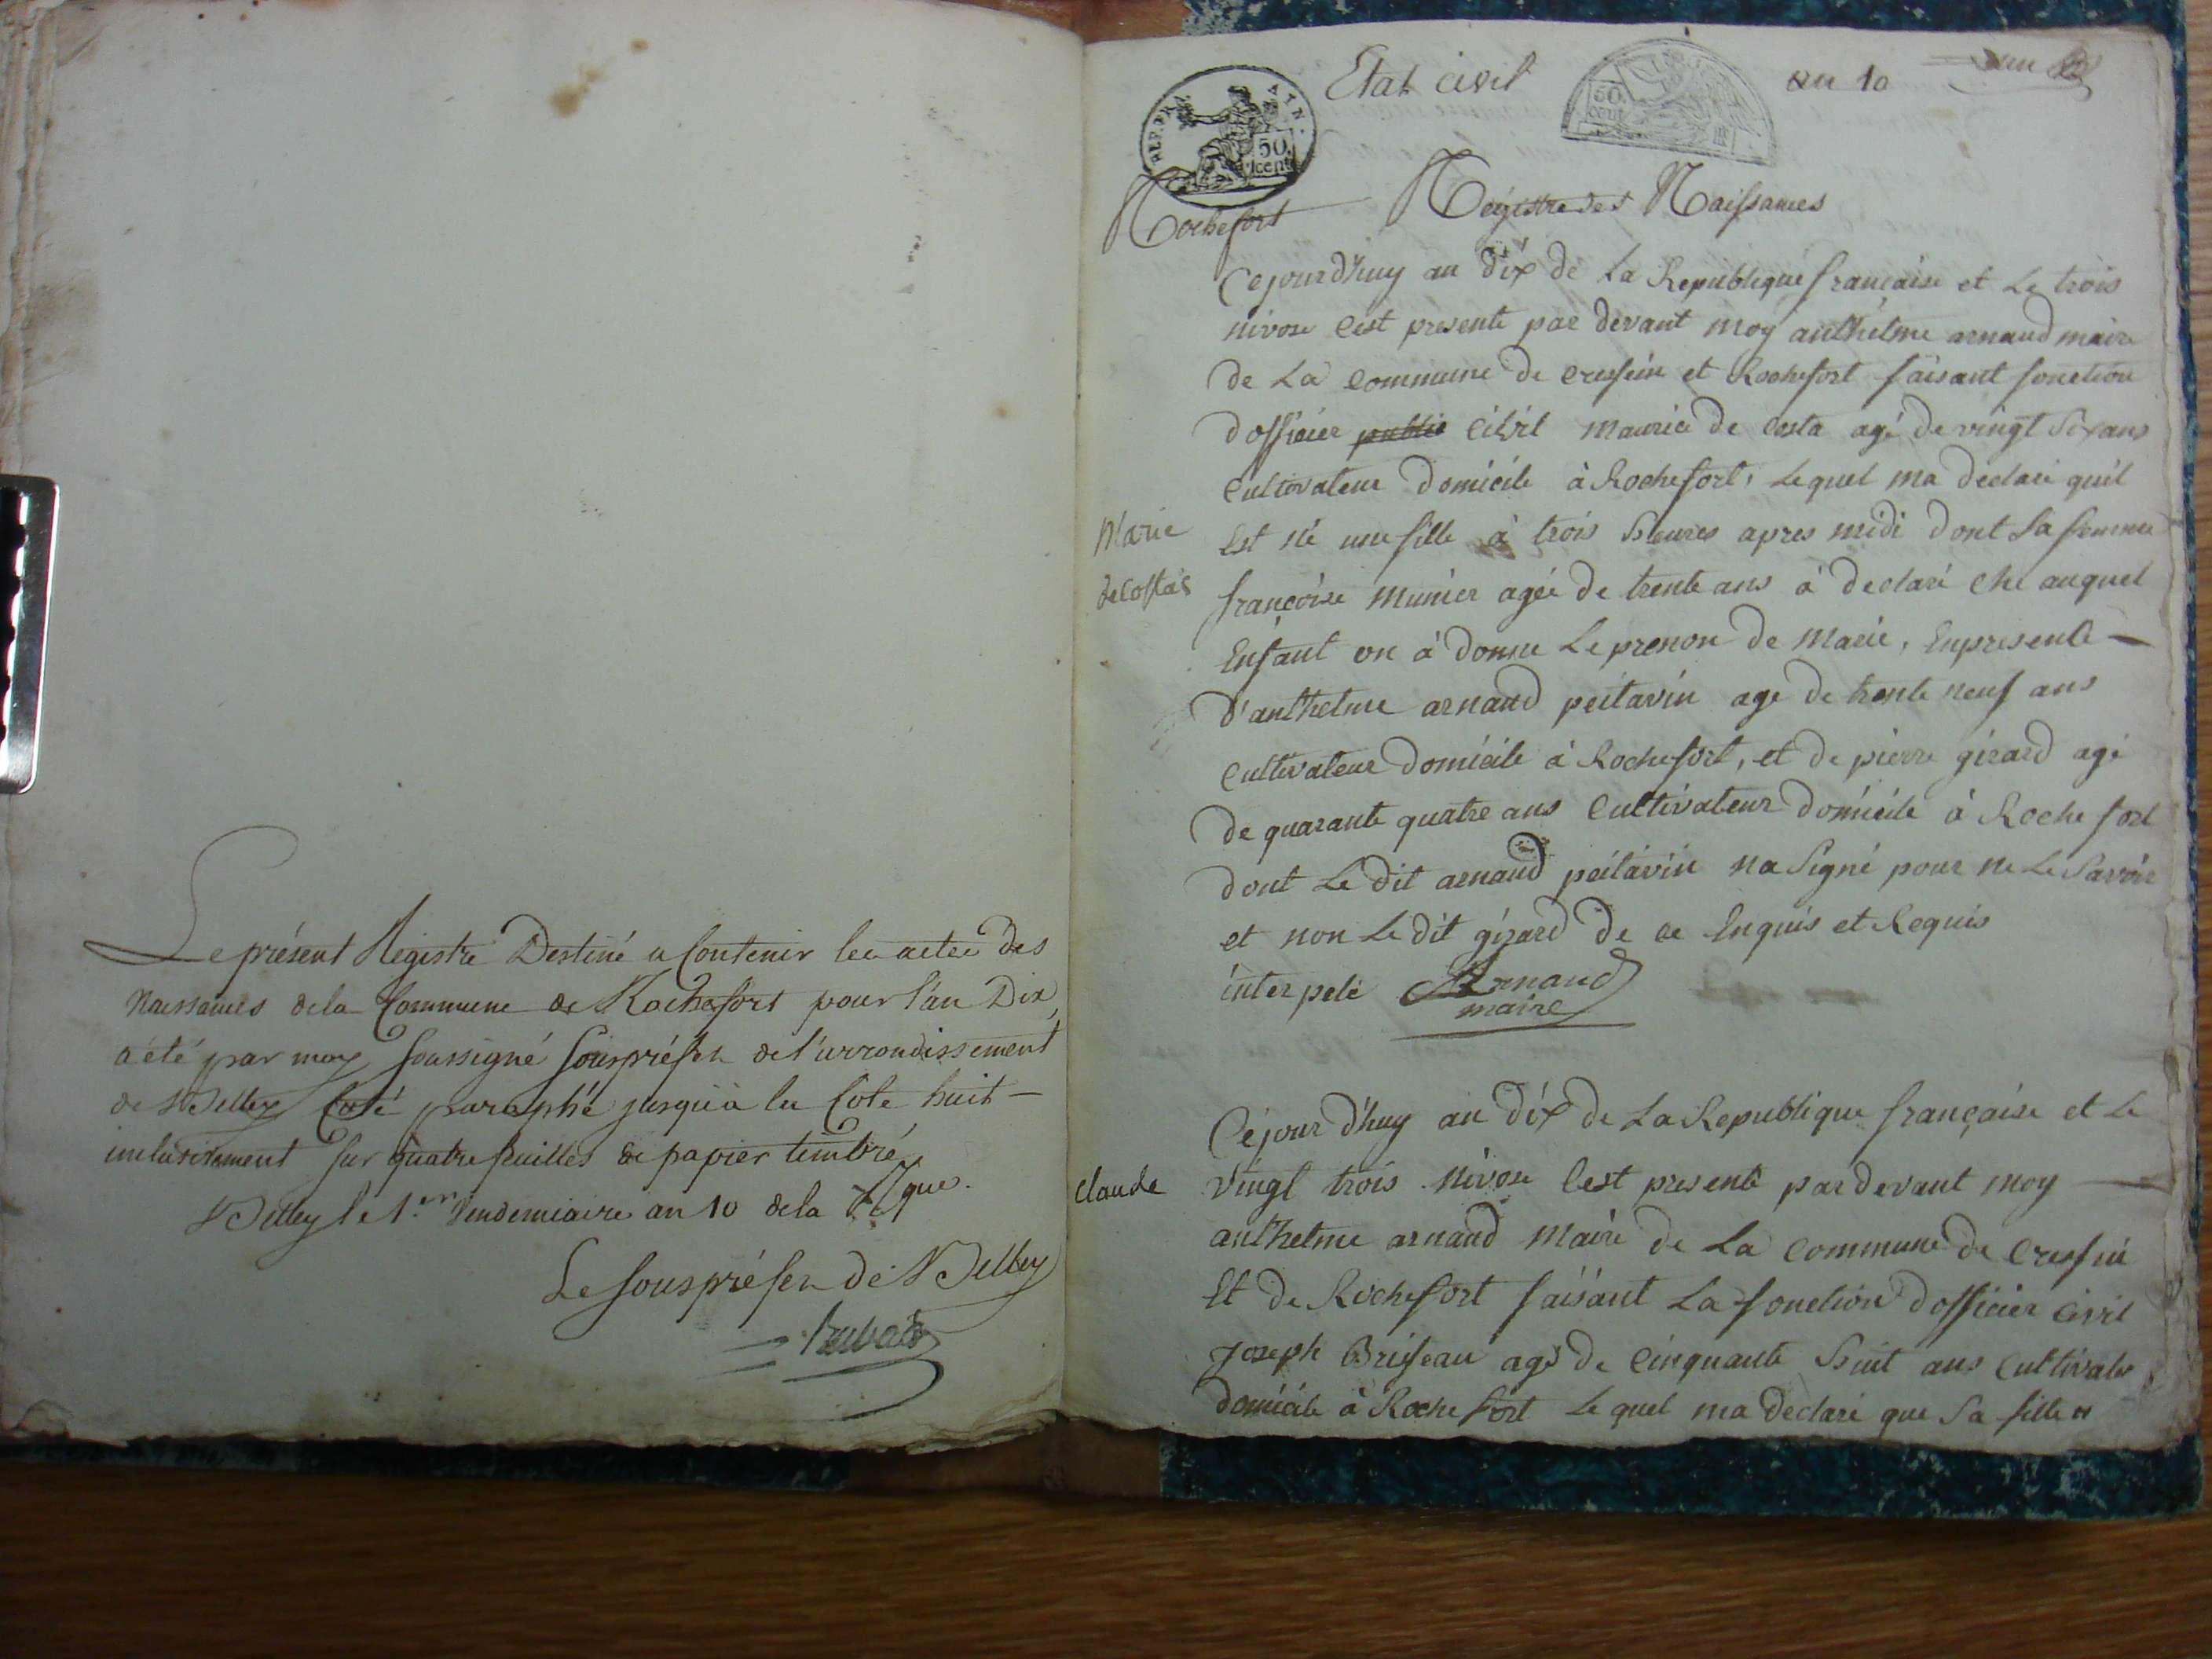 Le présent Registre Destiné a Contenir les actes des
Naissances de la Commune de Rochefort pour l'an Dix,
a été par moy soussigné Souspréfet de l'arrondissement
de Belley Coté paraphé jusqu'à la Cote huit —
inclusivement sur quatre feuilles de papier timbré.
Belley le 1.er Vendemiaire an 10 de la Rque.
Le souspréfet de Belley
Etat civil
an 10
REP. FRA
ATN.
50.
cent
50.
cent
Rochefort
Registre des Naissances
Cejourd'huy an dix de La Republique francaise et Le trois
nivose Cest presente par devant moy anthelme arnaud maire
de La Commune de Cressein et Rochefort faisant fonction
dofficier public Cilvil maurice de Costa agé de vingt Six ans
Cultivateur domicile à Rochefort, Lequel ma déclaré quil
Est né une fille à trois heures apres midi dont Sa femme
Marie
decostas
françoise Munier agée de trente ans à declaré Che auquel
Enfant on à donne Le prenon de Marie, Enpresente —
D'anthelme arnaud peitavin age de trente neuf ans
Cultivateur domicile à Rochefort, et de pierre girard agé
de quarante quatre ans Cultivateur domicile à Roche fort
dont Le dit arnaud peitavin na Signé pour ne Le Savoir
et non Le dit girard de ce Enquis et Requis
interpelé Arnaud
maire
Cejourd'huy an dix de La Republique française et Le
claude
vingt trois Nivose Cest presenté pardevant moy —
anthelme arnaud Maire de La Commune de
Et de Rochefort faisant La fonction dofficier Civil
Joseph Brisseau agé de Cinquante huit ans
domicile à Roche fort Le quel ma declaré que Sa fille